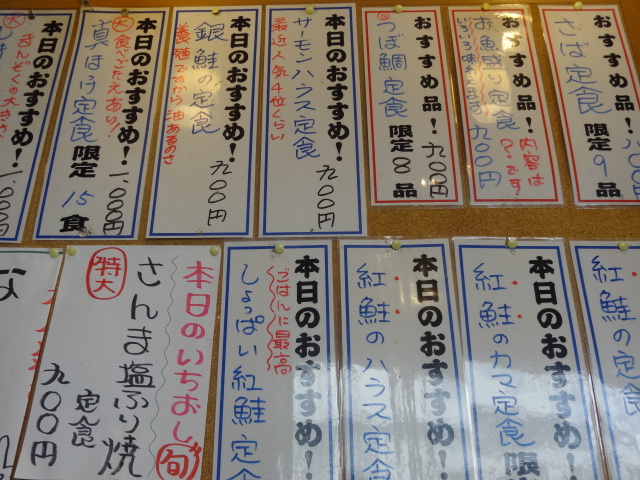 おすすめ品!
さば定食
限定9品
おすすめ品!
お魚盛り定食
内容は
??です
いろいろ味わえます
九〇〇円
おすすめ品!
つぼ鯛定食
九〇〇円
限定8品
本日のおすすめ!
サーモンハラス定食
最近人気4位くらい
九〇〇円
本日のおすすめ!
銀鮭の定食
養殖ですから油あるのさ
九〇〇円
本日のおすすめ!
大
食べごたえあり!
真ほっけ定食
1,000円
限定15食
本日のおすすめ!
きんぞくの大きさ
1,000円
本日のおすすめ!
紅鮭の定食
本日のおすすめ!
紅鮭のカマ定食
限
本日のおすすめ!
紅鮭のハラス定食
本日のおすすめ!
ごはんに最高
しょっぱい紅鮭定食
本日のいちおし
旬
特大
さんま塩ふり焼
定食
九〇〇円